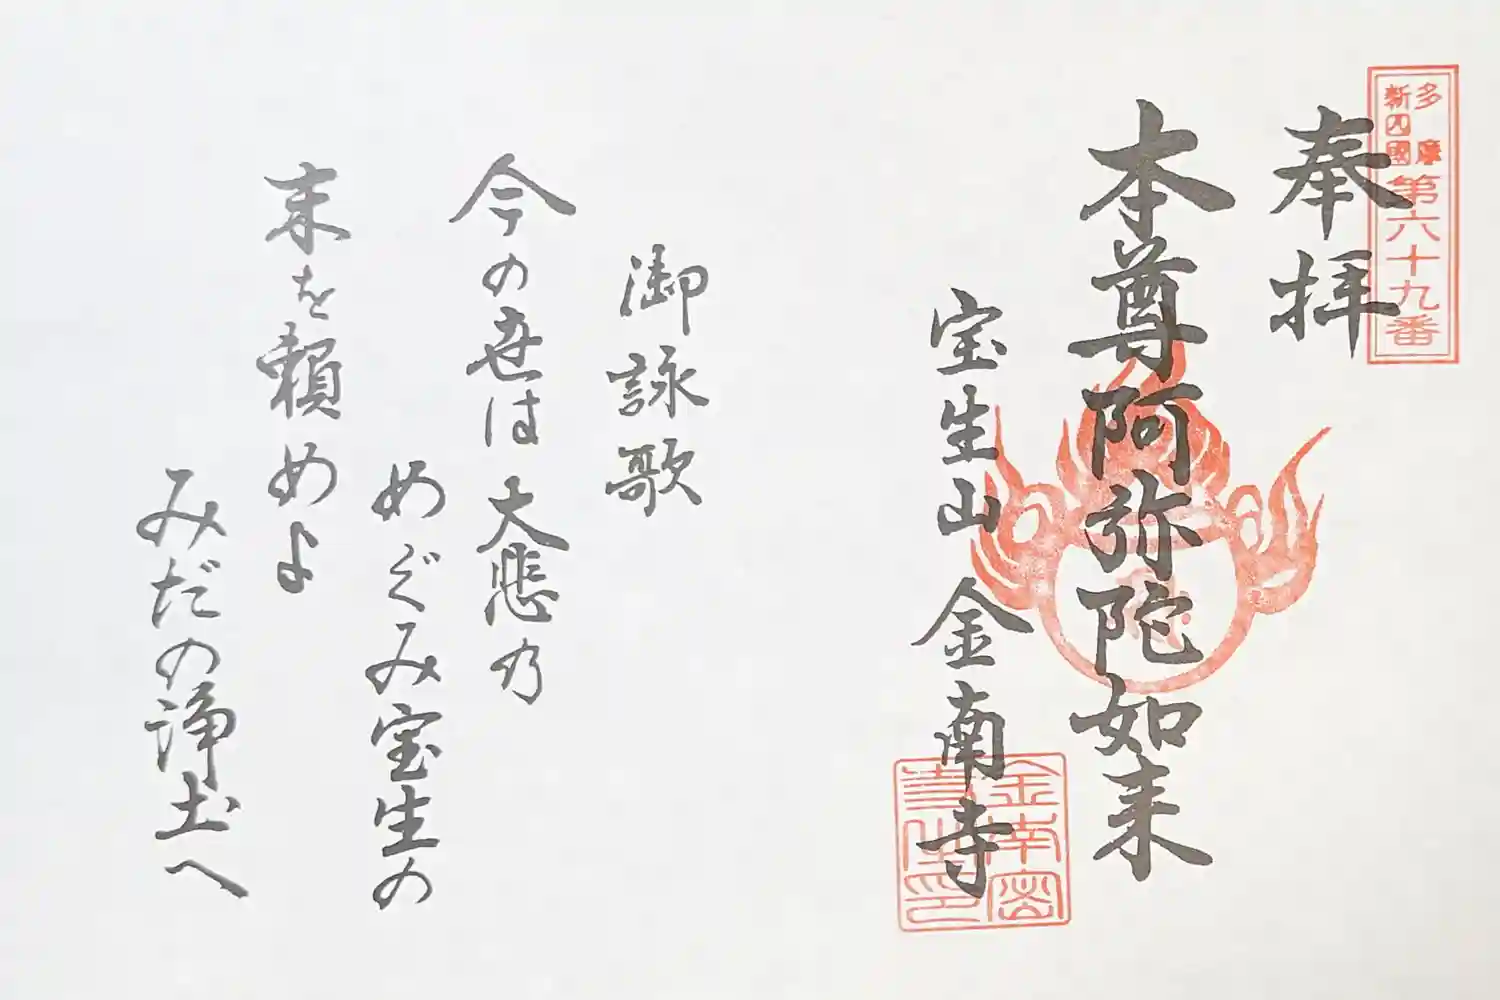 多摩
新四國
第六十九番
奉拝
本尊阿弥陀如来
宝生山 金南寺
御詠歌
今の世は大悲の
めぐみ宝生の
末を頼めよ
みだの浄土へ